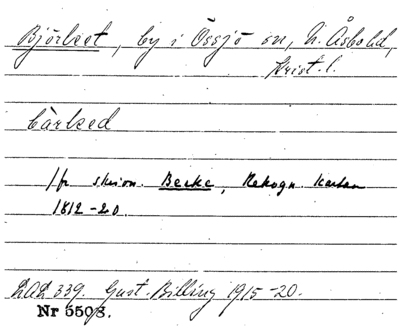 Björket, by i Össjö sn, N. Åsbohd,
Krist. l.
bàrked
/fr skion. Becke, Rekogn. kartan
1812-20.
LAL 339. Gust. Billing 1915-20.
Nr 5503.